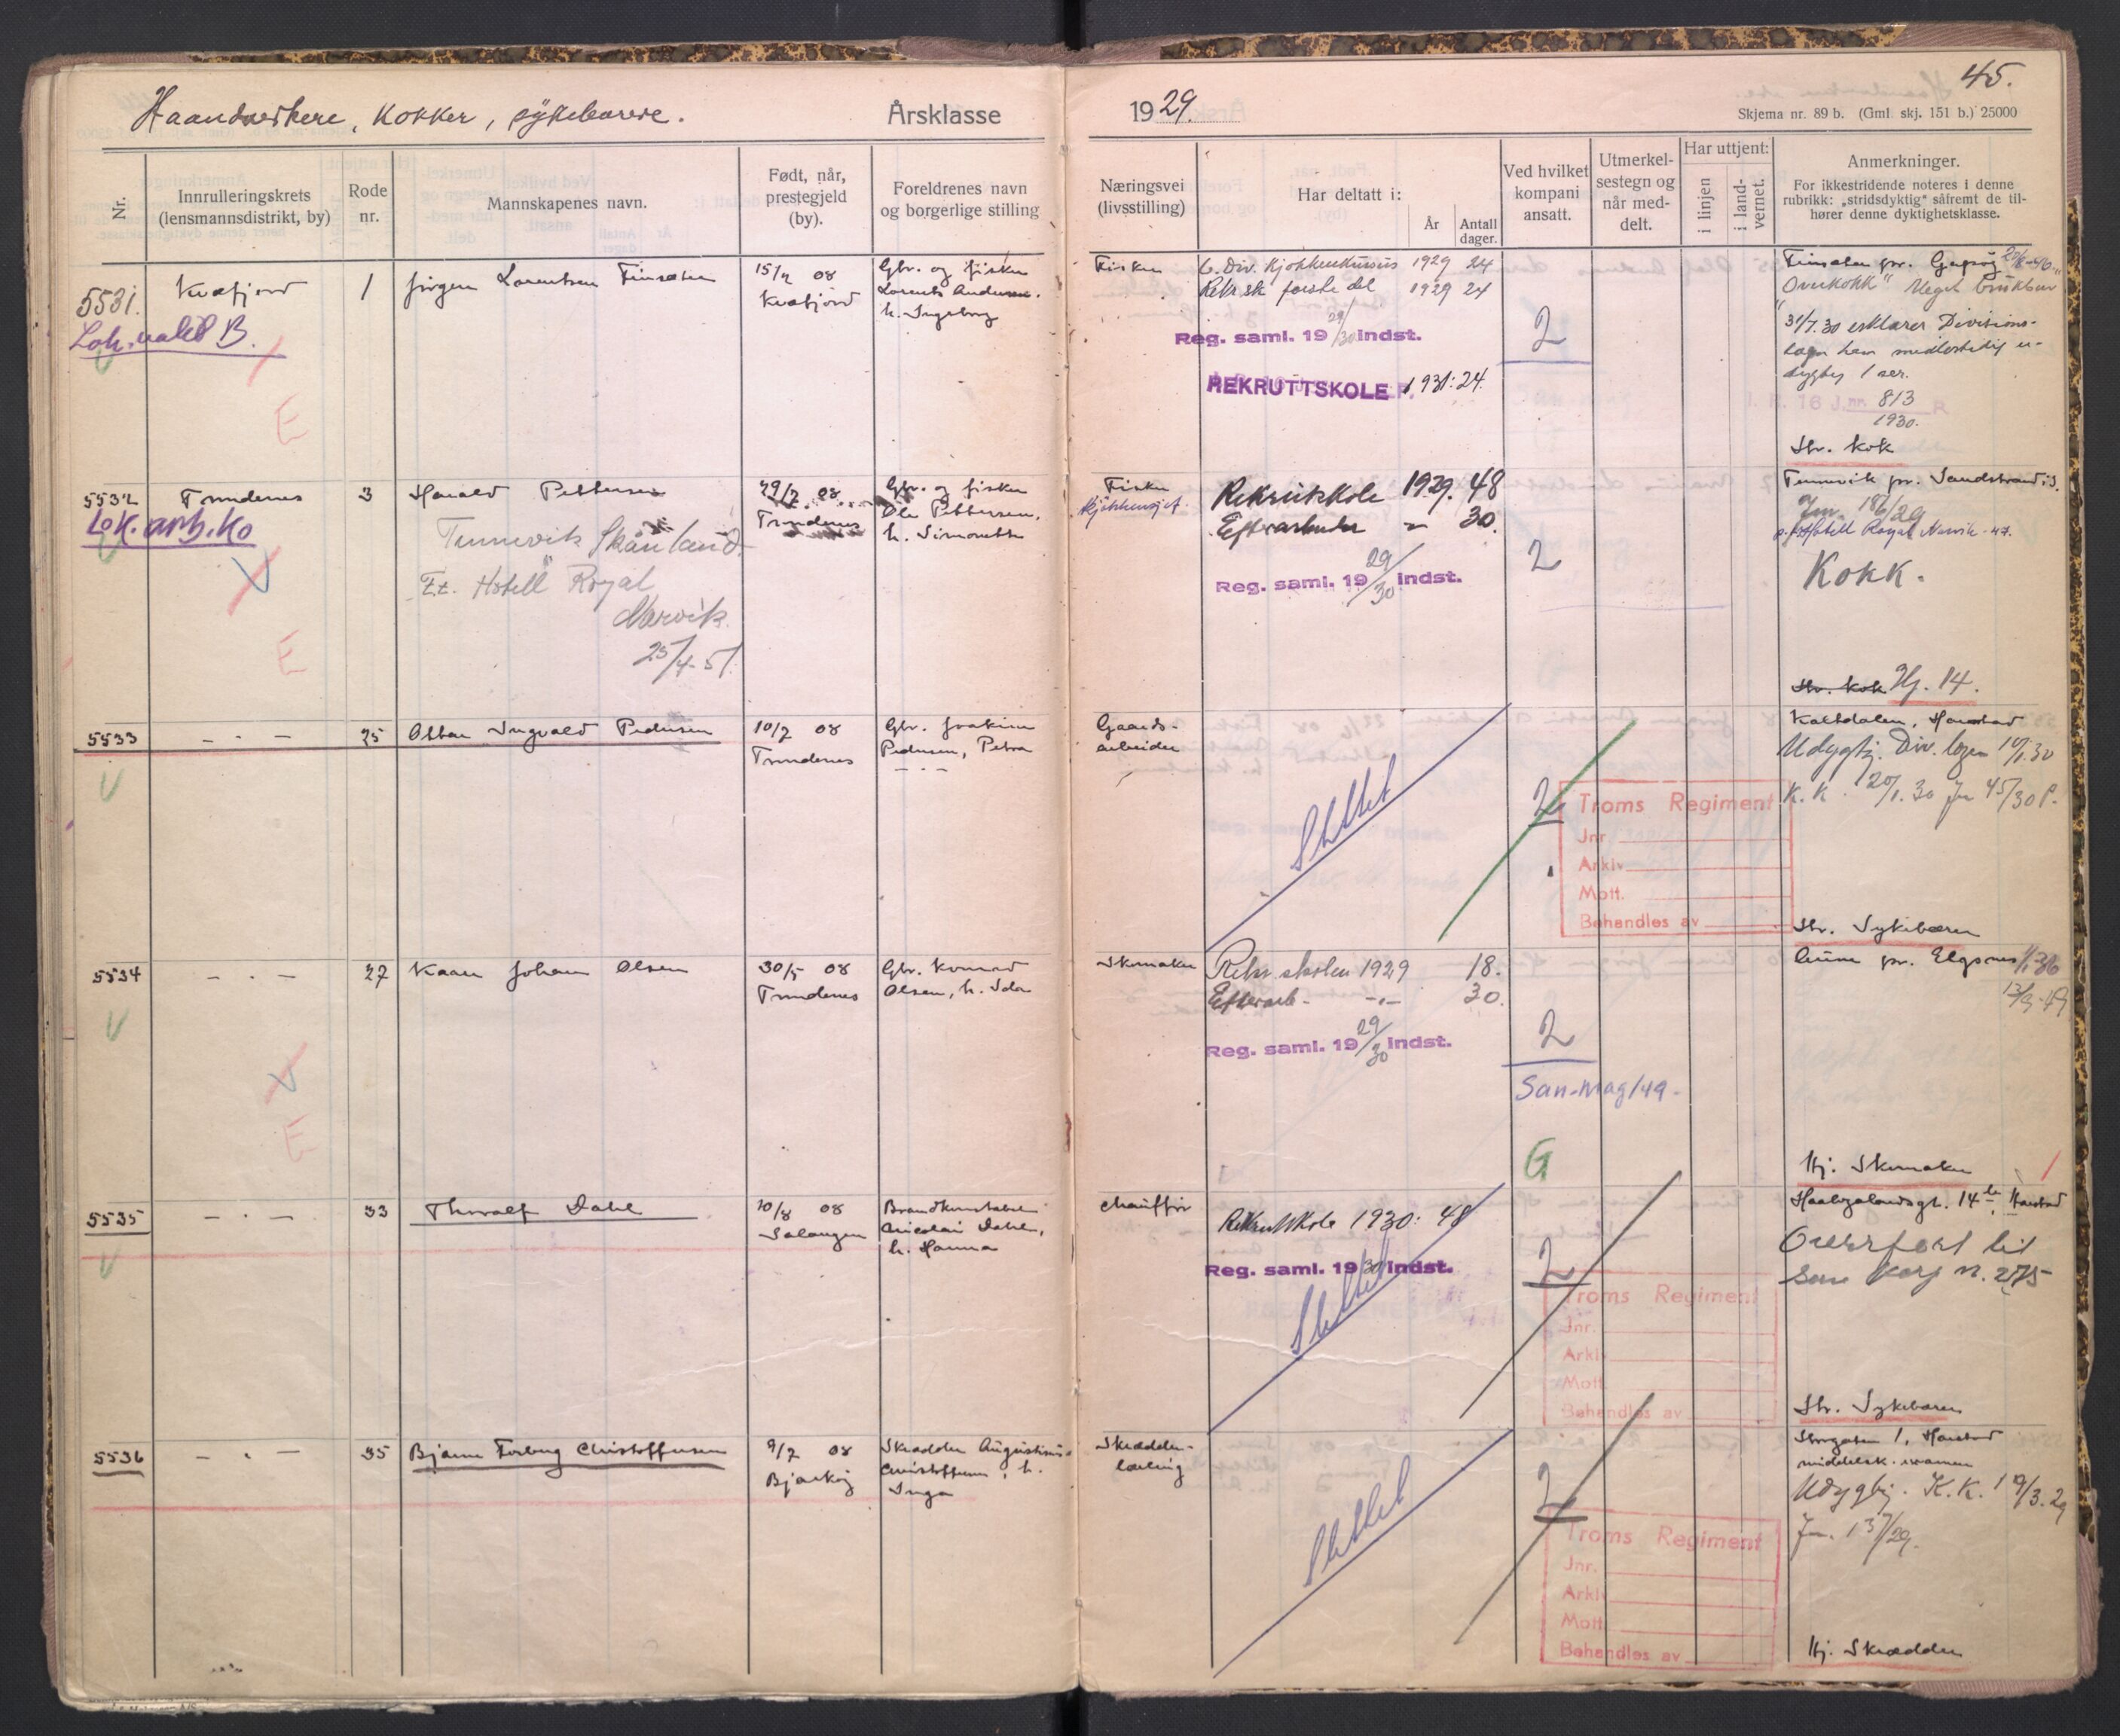 Haandverkere, Kokker, sykebærere. Årsklasse 1929. 45.
Skjema nr. 89 b. (Gml. skj. 151 b.) 25000
Nr.
Innrulleringskrets
(lensmannsdistrikt, by)
Rode
nr.
Mannskapenes navn.
Født, når,
prestegjeld
(by).
Foreldrenes navn
og borgerlige stilling
Næringsvei
(livsstilling)
Har deltatt i:
År
Antall
dager.
Ved hvilket
kompani
ansatt.
Utmerkel-
sestegn og
når med-
delt.
Har uttjent:
i linjen
i land-
vernet.
Anmerkninger.
For ikkestridende noteres i denne
rubrikk: „stridsdyktig“ såfremt de til-
hører denne dyktighetsklasse.
5531.
Kvæfjord
1
Jørgen Lorentsen Finsæter
15/2 08
Kvæfjord
Gbr. og fisker
Lorents Andersen.
h. Ingeborg
Lok. vakt B.
E
Fisker
6. Div. Kjøkkenkursus 1929 24
Rekr.sk første del 1929 24
Reg. saml. 19 29/30 indst.
REKRUTTSKOLE 1931: 24.
2
"Overkokk" Meget brukbar
31/7.30 erklærer Divisions-
lægen ham midlertidig u-
dygtig 1 aar.
813
1930.
Str. kok
5532
Trondenes
3
Harald Pettersen
29/7 08
Trondenes
Gbr. og fisker
Ole Pettersen,
h. Simonette
Lok. arb. Ko
Tennevik Skånland
Ft. Hotell Royal
Narvik.
25/4-51
E
Fisker
Rekrutskole 1929. 48
Efterarbeider " 30.
Reg. saml. 19 29/30 indst.
2
Tennevik pr. Sandstrand
Jnr. 186/29
Hotell Royal Narvik -47.
Kokk.
Str. kok Hj. 14.
5533
— . —
25
Ottar Ingvald Pedersen
10/7 08
Trondenes
Gbr. Joakim
Pedersen, Petra
— . —
Gaards-
arbeider
Slettet
2
Troms Regiment
Jnr
Arkiv
Mott.
Behandles av
Kaltdalen, Harstad
Udygtig. Div. legen 10/1.30
K. K. 20/1.30 Jnr 45/30 P.
Str. Sykebærer
5534
— . —
27
Kaare Johan Olsen
30/5 08
Trondenes
Gbr. Konrad
Olsen, h. Ida
E
Skomaker
Rekr.skolen 1929 18.
Efterarb. — . — 30.
Reg. saml. 19 29/30 indst.
2
San-mag/49-
G
Hj. Skomaker
5535
— . —
33
Thoralf Dahl
10/8 08
Salangen
Brandkonstabel
Nicolai Dahl,
h. Hanna
Chauffør
Rekrutskole 1930: 48
Reg. saml. 19 30 indst.
Slettet
2
Troms Regiment
Jnr.
Arkiv
Mott
Behandles av
Haalogalandsgt. 14 b, Harstad
Overført til
San Korj n. 275
Str. Sykebærer
5536
— . —
35
Bjarne Forberg Christoffersen
9/7 08
Bjarkøy
Skrædder Augustinus
Christoffersen, h.
Inga
Skrædder-
lærling
Slettet
2
Troms Regiment
Jnr.
Arkiv
Mott
Behandles av
Storgaten 1, Harstad
middelsk. examen
Udygtig. K.K. 19/3.29
Jnr. 137/29.
Hj. Skrædder